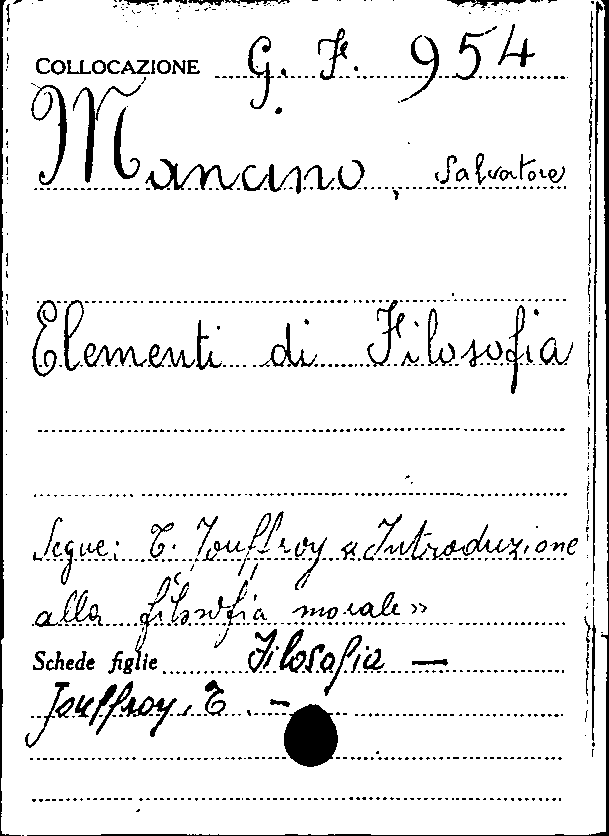 COLLOCAZIONE G. F. 954
Mancino, Salvatore
Elementi di Filosofia
Segue: T. Jouffroy «Introduzione
alla filosofia morale»
Schede figlie Filosofia —
Jouffroy, T. —